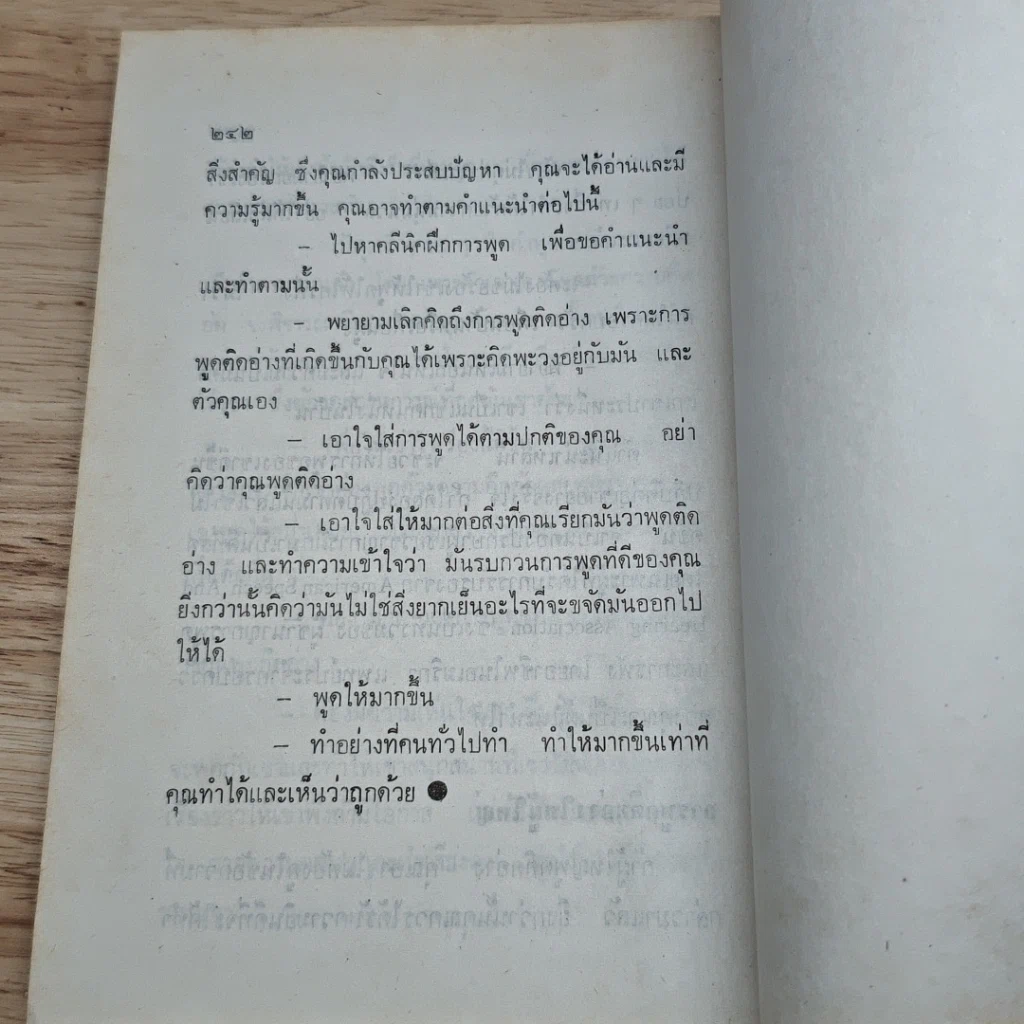 ๒๔๒
สิ่งสำคัญ ซึ่งคุณกำลังประสบปัญหา คุณจะได้อ่านและมี
ความรู้มากขึ้น คุณอาจทำตามคำแนะนำต่อไปนี้
– ไปหาคลีนิคฝึกการพูด เพื่อขอคำแนะนำ
และทำตามนั้น
– พยายามเลิกคิดถึงการพูดติดอ่าง เพราะการ
พูดติดอ่างที่เกิดขึ้นกับคุณได้เพราะคิดพะวงอยู่กับมัน และ
ตัวคุณเอง
– เอาใจใส่การพูดได้ตามปกติของคุณ อย่า
คิดว่าคุณพูดติดอ่าง
– เอาใจใส่ให้มากต่อสิ่งที่คุณเรียกมันว่าพูดติด
อ่าง และทำความเข้าใจว่า มันรบกวนการพูดที่ดีของคุณ
ยิ่งกว่านั้นคิดว่ามันไม่ใช่สิ่งยากเย็นอะไรที่จะขจัดมันออกไป
ให้ได้
– พูดให้มากขึ้น
– ทำอย่างที่คนทั่วไปทำ ทำให้มากขึ้นเท่าที่
คุณทำได้และเห็นว่าถูกด้วย ●